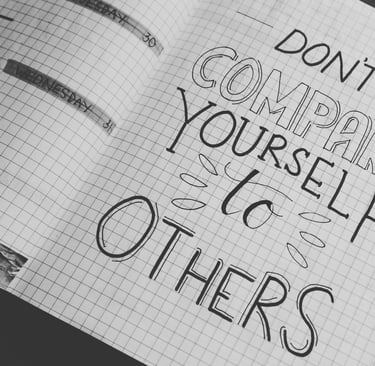 30
WEDNESDAY 31
DON'T
COMPAR
YOURSELF
to
OTHERS